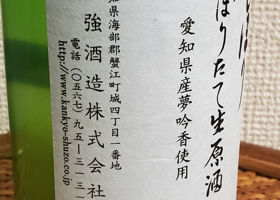 ぼりたて生原酒
愛知県産夢吟香使用
知県海部郡蟹江町城四丁目一番地
強酒造株式会社
電話(〇五六七)九五-三一三一
http://www.kankyo-shuzo.co.jp